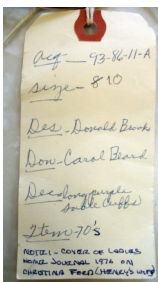 acq — 93-86-11-A
size - 8-10
Des - Donald Brook
Don - Carol Beard
Dec - long purple
sable cuffs
Item - 70's
NOTE: - COVER OF LADIES
HOME JOURNAL 1976 ON
CHRISTINA FORD (HENRY'S WIFE)